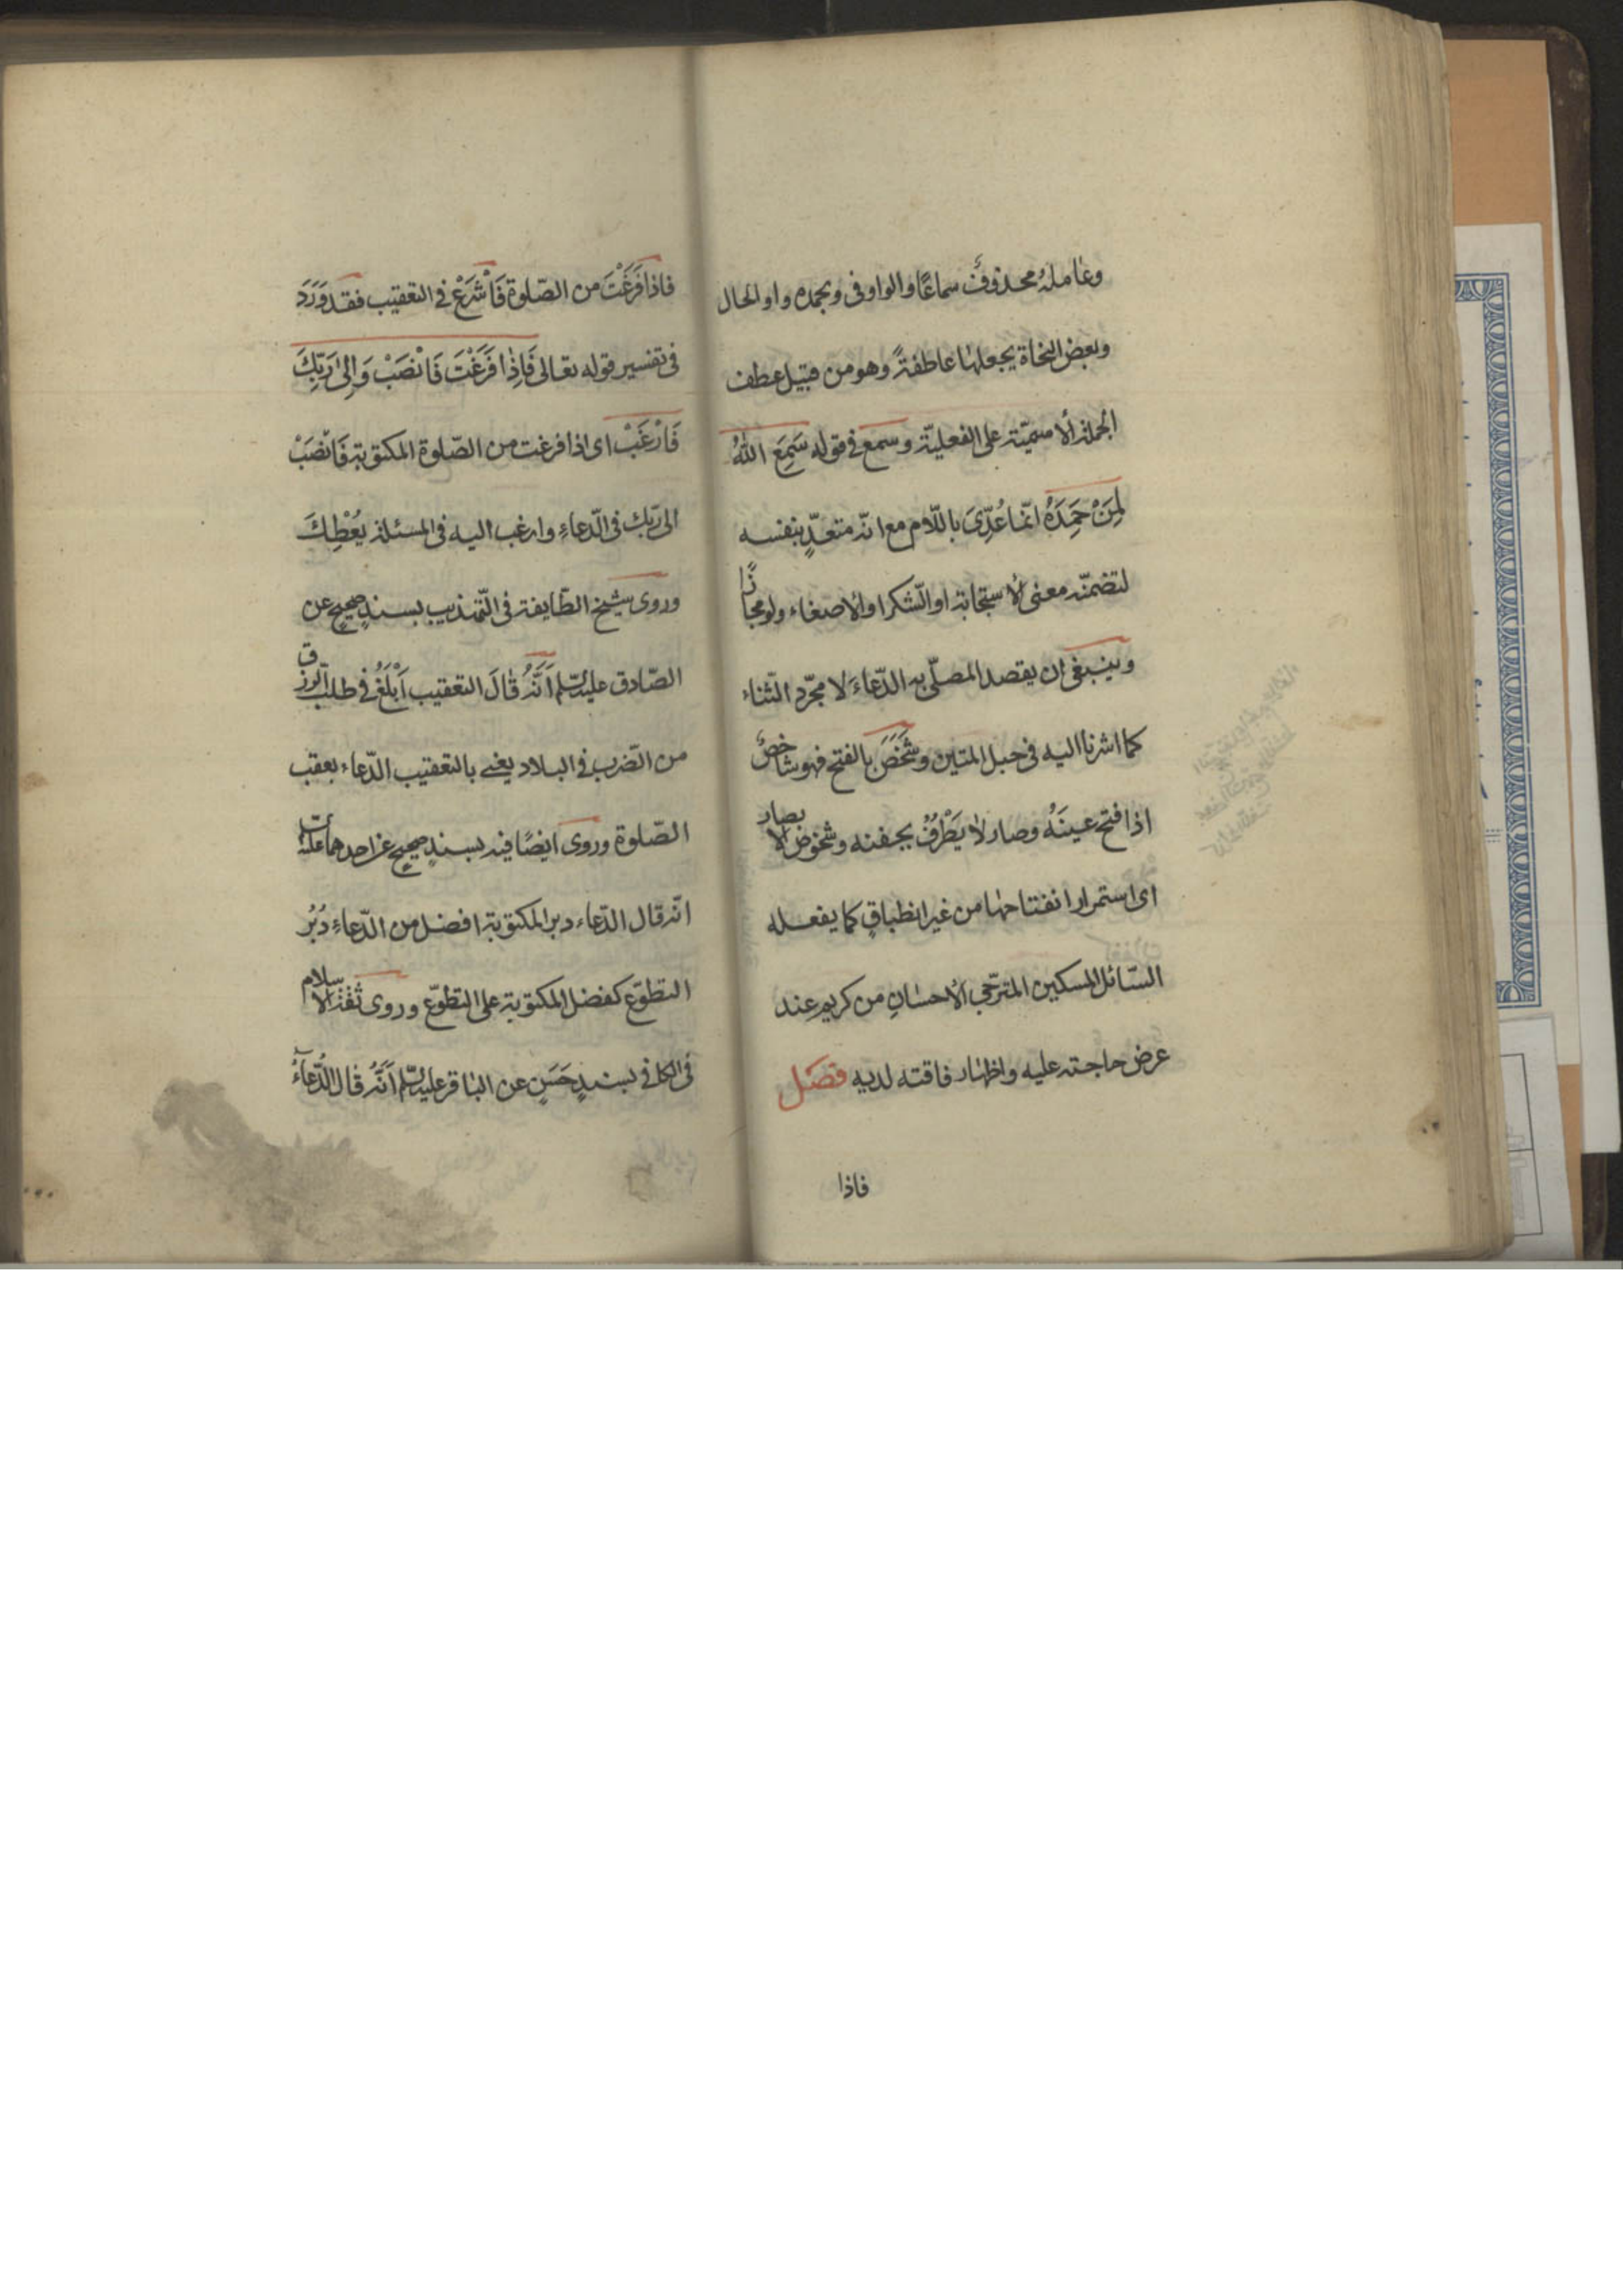 وعٰامِلهُ محذوفٌ سماعًا والواو فى وبحمده واو الحال
وبعض النحٰاة يجعلهٰا عٰاطفةً وهو من قبيل عطف
الجملة الاسميّة على الفعليّة وسمع فى قوله سَمِعَ اللّٰهُ
لِمَنْ حَمِدَهُ انّمٰا عُدِّىَ باللّام مع انّه متعدٍّ بنفسه
لتضمنّه معنى الاستجٰابة او الشّكر او الاصغاء ولو مجازًا
وينبغى ان يقصد المصلّى به الدّعاءَ لا مجرّد الثّناء
كما اشرنا اليه فى حبل المتين وشَخَصَ بالفتح فهو شاخصٌ
اذا فتح عينَهُ وصار لٰا يَطْرُفُ بجفنه وشخوص الابصار
اى استمرار انفتاحهٰا من غير انطباقٍ كما يفعله
السّائل المسكين المترجّى الاحسٰانِ من كريمٍ عِند
عرض حاجته عليه واظهٰار فاقته لديه فصَل
فاذا
فاذا فَرَغْتَ من الصّلوة فَاشْرَعْ فى التعقيب فقد وَرَدَ
فى تفسير قوله تعالى فَاِذٰا فَرَغْتَ فَانْصَبْ وَاِلىٰ رَبِّكَ
فَارْغَبْ اى اذا فرغت من الصّلوة المكتوبة فَانْصَبْ
الى ربّك فى الدّعاءِ وارغب اليه فى المسئلة يُعْطِكَ
وروى شيخ الطّايفة فى التّهذيب بسندٍ صحيحٍ عن
الصّادق عليه السّلم اَنَّهُ قٰالَ التعقيب اَبْلَغُ فى طلب الرّزق
من الضّرب فى البلاد يعنى بالتعقيب الدّعاء بعقب
الصّلوة وروى ايضًا فيه بسندٍ صحيحٍ عن احدهما عليهما
انّه قال الدّعاء دبر المكتوبة افضل من الدّعاءِ دُبُرَ
التطوّع كفضل المكتوبة على التطوّع وروى ثقة الاسلام
فى الكافى بسندٍ حَسَنٍ عن البٰاقر عليه السّلم اَنَّهُ قٰال الدُّعآءُ